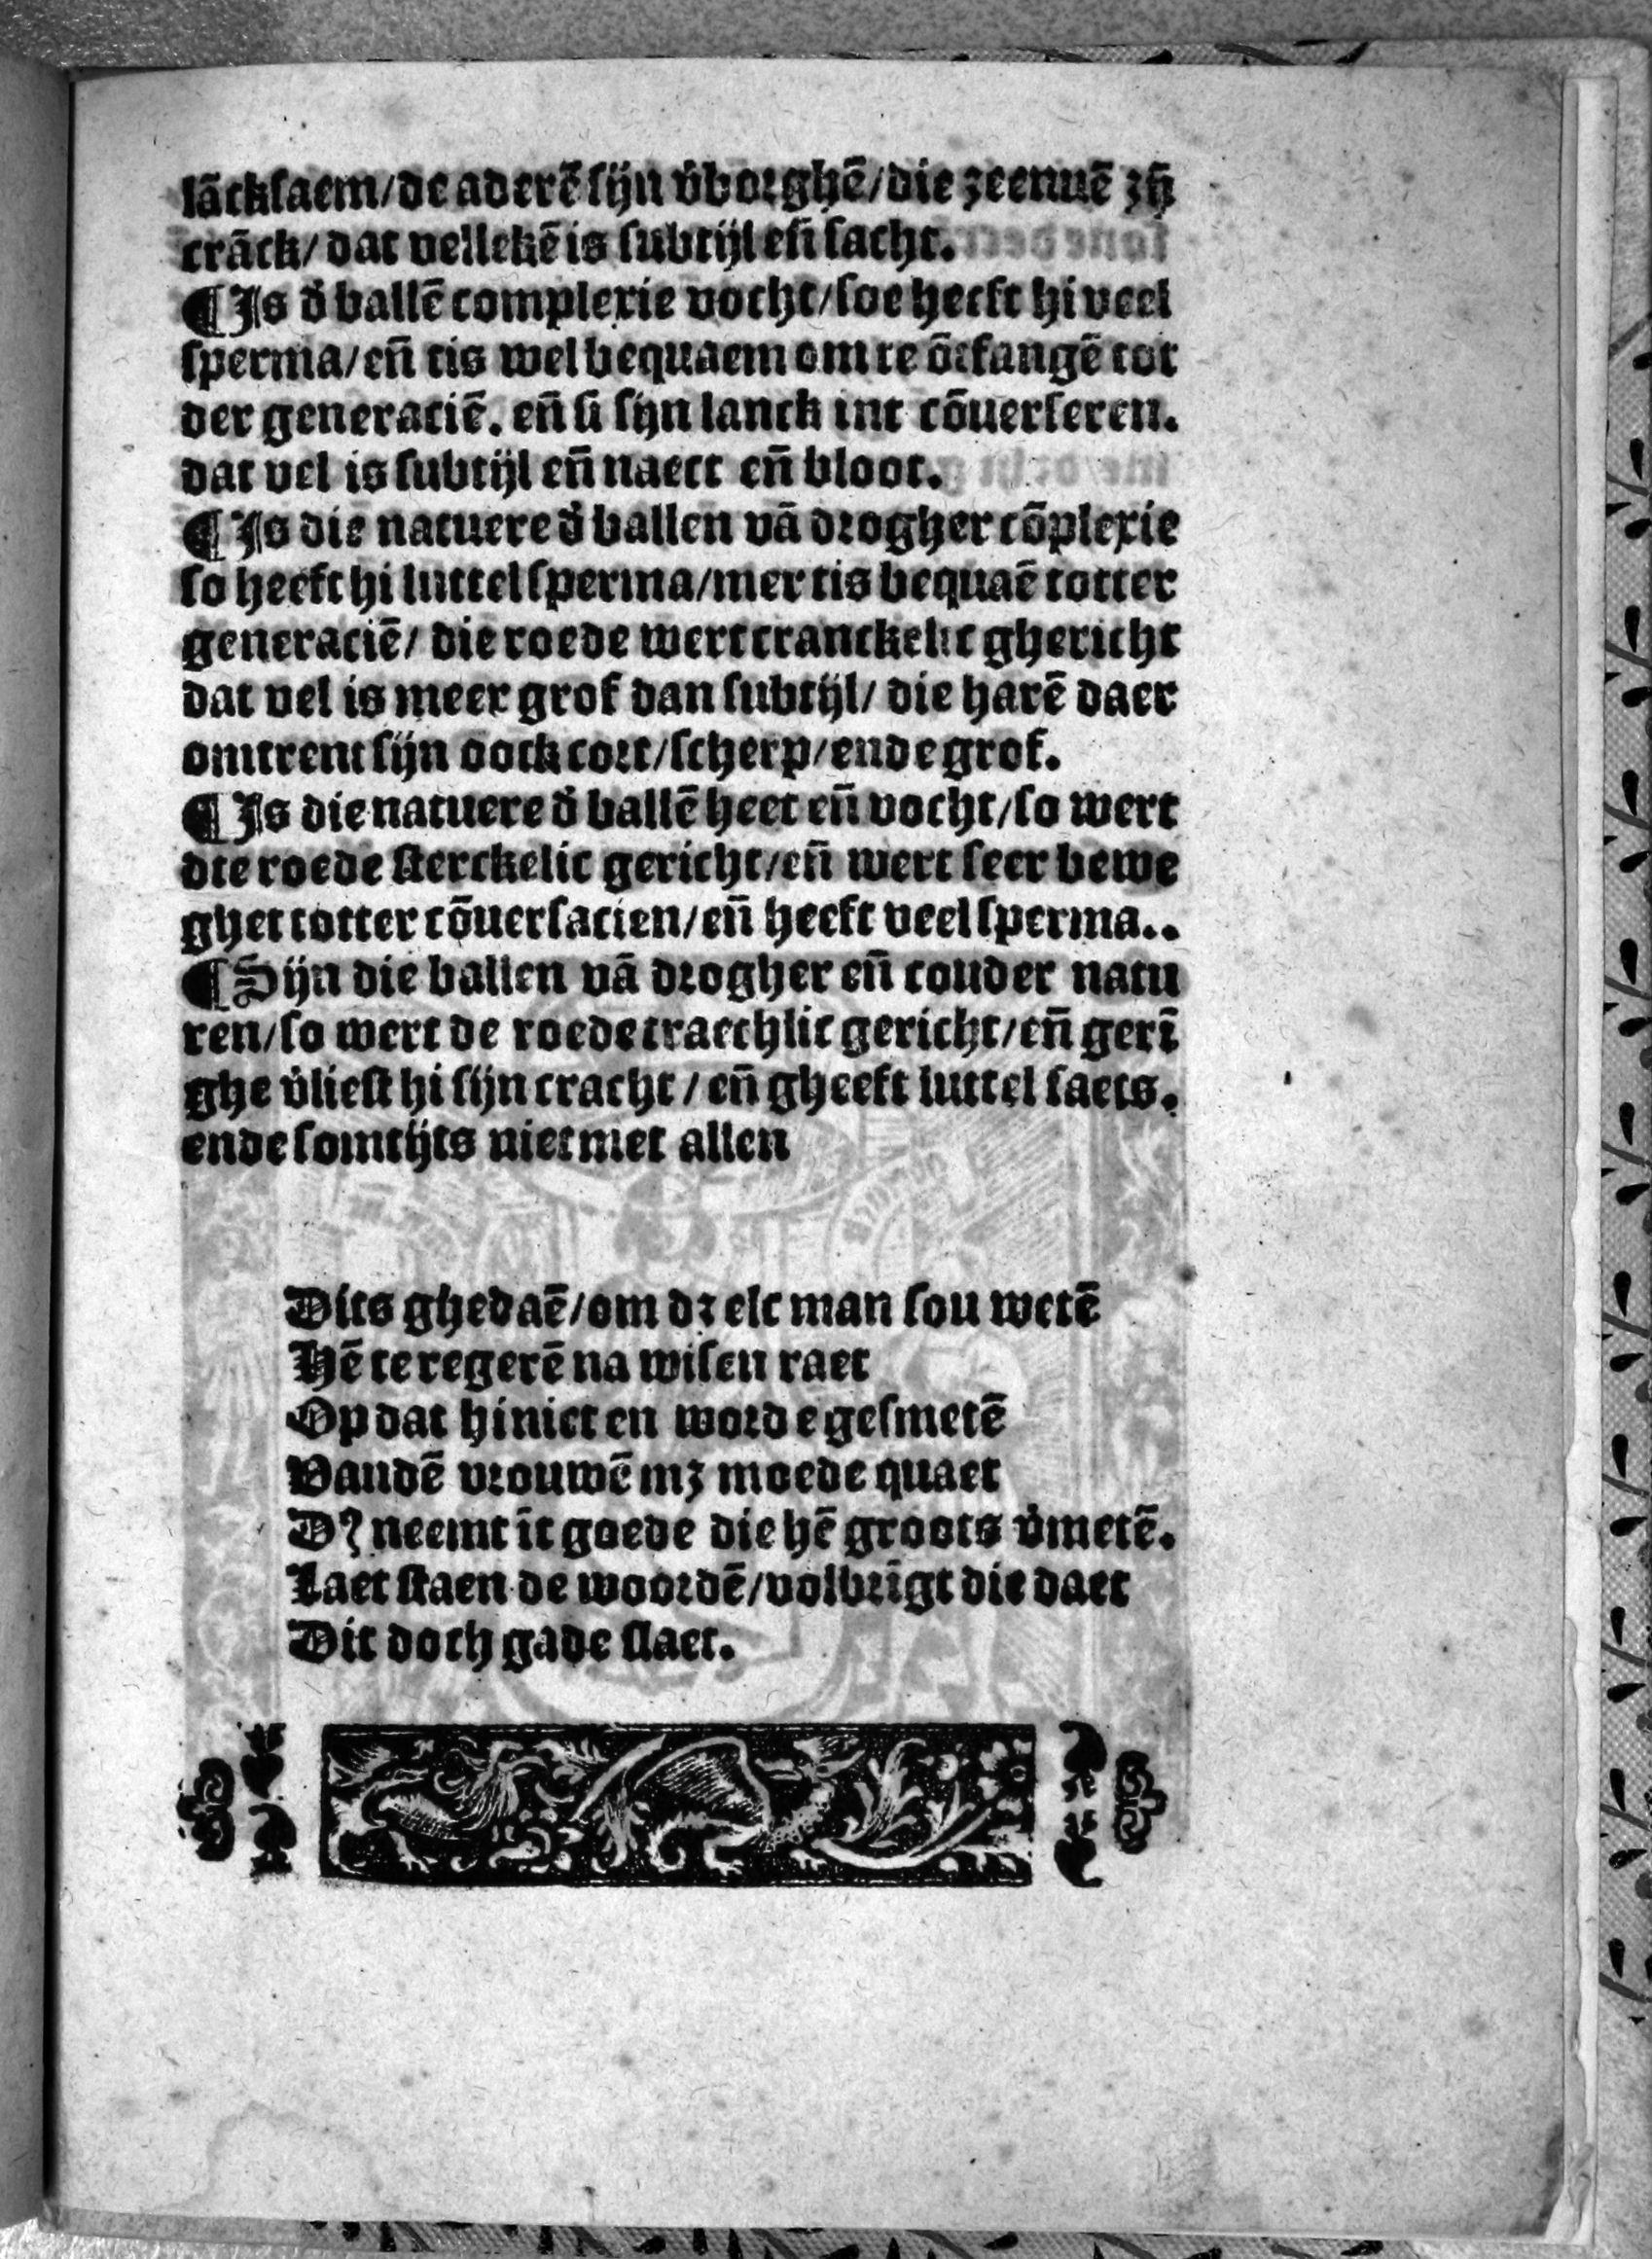 lāckſaem/de aderē ſijn v̄borghē/die zeenuē zȳ
crāck/ dat vellekē is ſubtijl eñ ſacht.
¶ Is d̄ ballē complexie vocht/ſoe heeft hi veel
ſperma/eñ tis wel bequaem om te ōtfangē tot
der generaciē. eñ ſi ſijn lanck int cōuerſeren.
dat vel is ſubtijl eñ naect eñ bloot.
¶ Is die natuere d̄ ballen vā drogher cōplexie
ſo heeft hi luttel ſperma/mer tis bequaē totter
generaciē/ die roede wert cranckelic ghericht
dat vel is meer grof dan ſubtijl/ die harē daer
omtrent ſijn oock cort/ſcherp/ende grof.
¶ Is die natuere d̄ ballē heet eñ vocht/ſo wert
die roede ſterckelic gericht/eñ wert ſeer bewe
ghet totter cōuerſacien/eñ heeft veel ſperma..
¶ Sijn die ballen vā drogher eñ couder natu
ren/ſo wert de roede traechlic gericht/eñ gerī
ghe v̄lieſt hi ſijn cracht/ eñ gheeft luttel ſaets.
ende ſomtijts niet met allen
Dits ghedaē/om dꝫ elc man ſou wetē
Hē te regerē na wiſen raet
Op dat hi niet en worde geſmetē
Vandē vrouwē mꝫ moede quaet
Dꝫ neemt īt goede die hē groots v̄metē.
Laet ſtaen de woordē/volbrīgt die daet
Dit doch gade ſlaet.